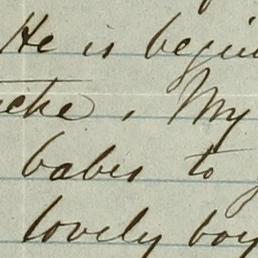 He is begin
ache, My
babes to
lovely boy